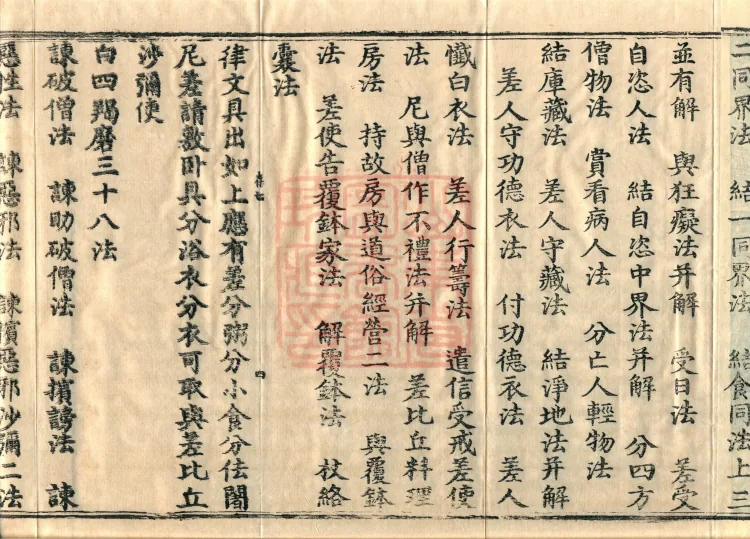 二同界法　結一同界法　結食同法上三
並有解　與狂癡法并解　受日法　差受
自恣人法　結自恣中界法并解　分四方
僧物法　賞看病人法　分亡人輕物法
結庫藏法　差人守藏法　結淨地法并解
差人守功德衣法　付功德衣法　差人
懺白衣法　差人行籌法　遣信受戒差使
法　尼與僧作不禮法并解　差比丘料理
房法　持故房與道俗經營二法　與覆鉢
法　差使告覆鉢家法　解覆鉢法　杖絡
囊法
律文具出如上應有差分粥分小食分佉闍
尼差請敷卧具分浴衣分衣可取與差比丘
沙彌使
白四羯磨三十八法
諫破僧法　諫助破僧法　諫擯謗法　諫
惡性法　諫惡邪法　諫擯惡邪沙彌二法